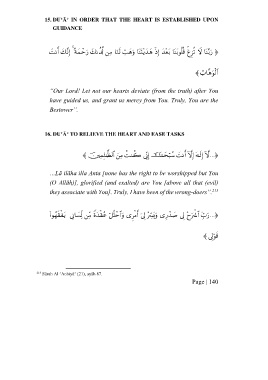 15. DU'Ā' IN ORDER THAT THE HEART IS ESTABLISHED UPON
GUIDANCE
﴿ رَبَّنَا لَا تُزِغْ قُلُوبَنَا بَعْدَ إِذْ هَدَيْتَنَا وَهَبْ لَنَا مِن لَّدُنكَ رَحْمَةً ۚ إِنَّكَ أَنتَ
ٱلْوَهَّابُ ﴾
"Our Lord! Let not our hearts deviate (from the truth) after You
have guided us, and grant us mercy from You. Truly, You are the
Bestower".
16. DU'Ā' TO RELIEVE THE HEART AND EASE TASKS
﴿ ..لَّآ إِلَـٰهَ إِلَّآ أَنتَ سُبْحَـٰنَكَ إِنِّى كُنتُ مِنَ ٱلظَّـٰلِمِينَ ﴾
...Lā ilāha illa Anta [none has the right to be worshipped but You
(O Allāh)], glorified (and exalted) are You [above all that (evil)
they associate with You]. Truly, I have been of the wrong-doers"
﴿ ..رَبِّ ٱشْرَحْ لِى صَدْرِى وَيَسِّرْ لِىٓ أَمْرِى وَٱحْلُلْ عُقْدَةً مِّن لِّسَانِى يَفْقَهُوا۟
قَوْلِى ﴾
Sūrah Al "Anbiyā" (21), āyāh 87.
Page | 140